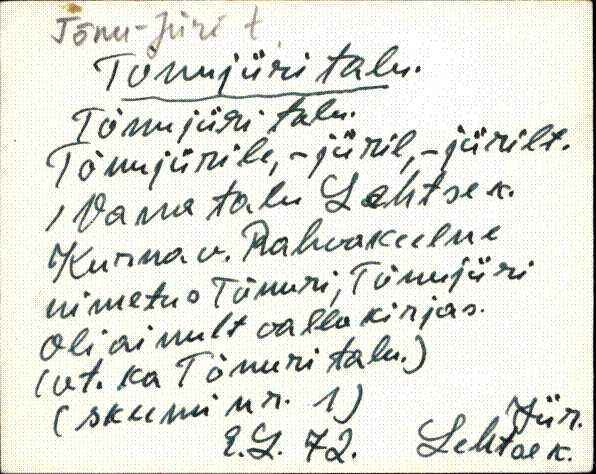 Tõnu-Jüri t
Tõnujüri talu.
Tõnujüri talu.
Tõnujürile, -jüril, -jürilt.
/ Vana talu Lehtse k.
Kurna v. Rahvakeelne
nimetus Tõnuri, Tõnujüri
oli ainult vallakirjas.
(vt. ka Tõnuri talu.)
(skeemi nr. 1)
Jür.
E.L. 72. Lehtse k.